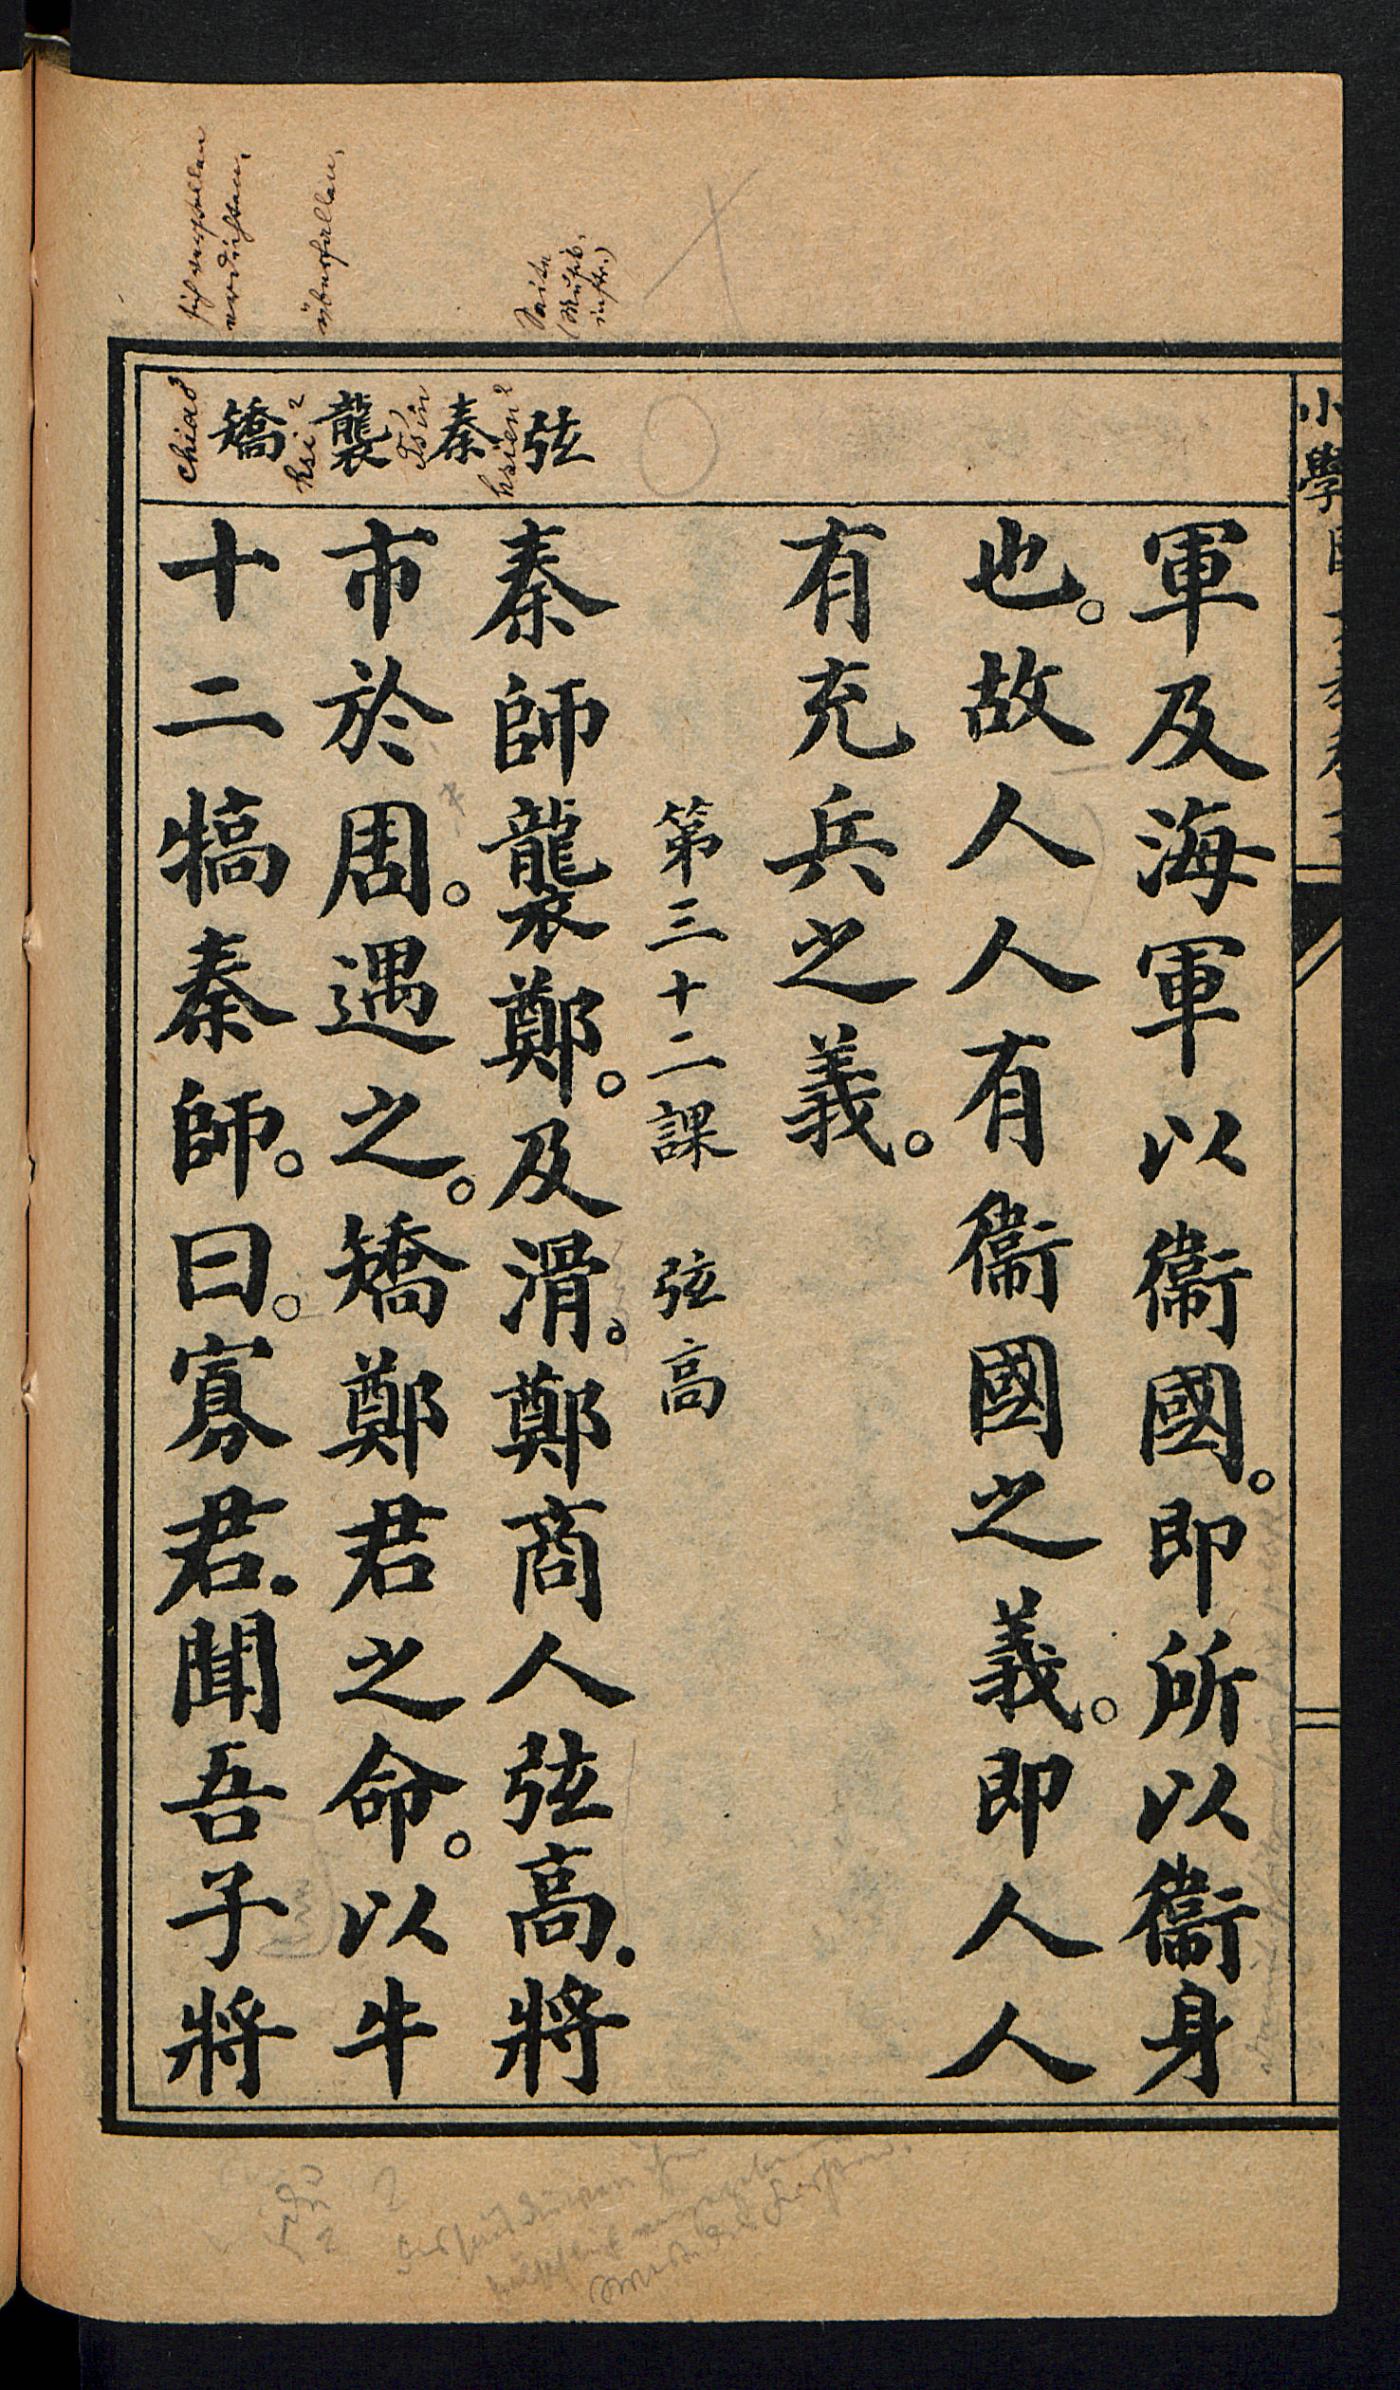 小學
軍及海軍以衞國。即所以衞身
也。故人人有衞國之義。即人人
有充兵之義。
第三十二課 弦高
弦 秦 襲 矯
hsien2
Ts'in
hsi2
chiao3
Saite
(Musik.
instr.)
überfallen,
秦師襲鄭。及滑。鄭商人弦高.將
市於周。遇之。矯鄭君之命。以牛
十二犒秦師。曰。寡君.聞吾子將